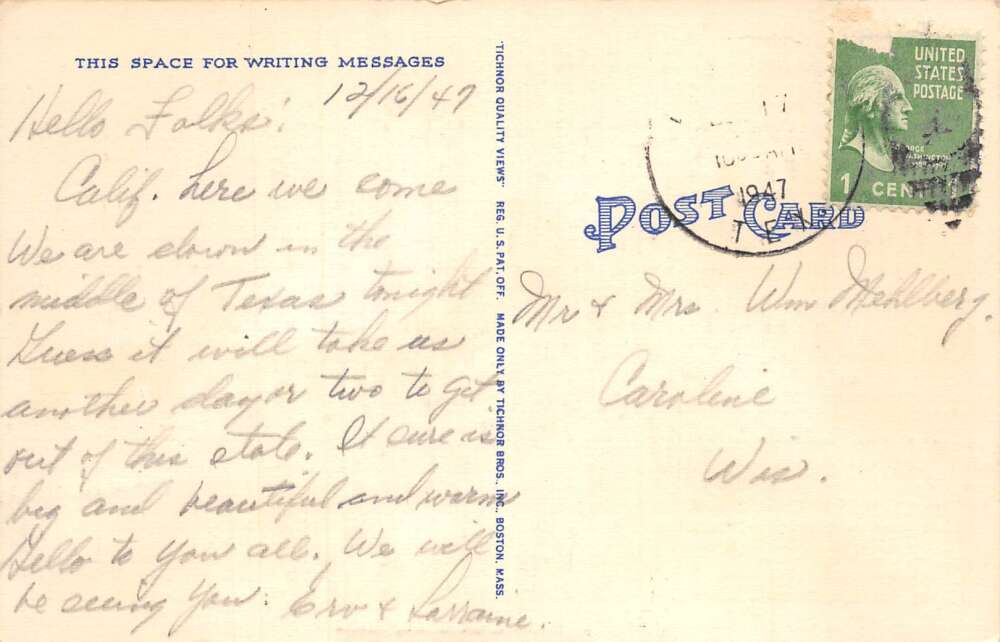 THIS SPACE FOR WRITING MESSAGES
12/16/47
Hello Folks:
Calif. here we come
We are down in the
middle of Texas tonight
Guess it will take us
another day or two to get
out of this state. It sure is
big and beautiful and warm
Hello to you all. We will
be seeing you. Erv & Lorraine.
"TICHNOR QUALITY VIEWS" REG. U.S. PAT. OFF. MADE ONLY BY TICHNOR BROS., INC., BOSTON, MASS.
UNITED
STATES
POSTAGE
WASHINGTON
1 CENT
17
1947
TEX
POST CARD
Mr & Mrs. Wm Mehlberg.
Caroline
Wis.